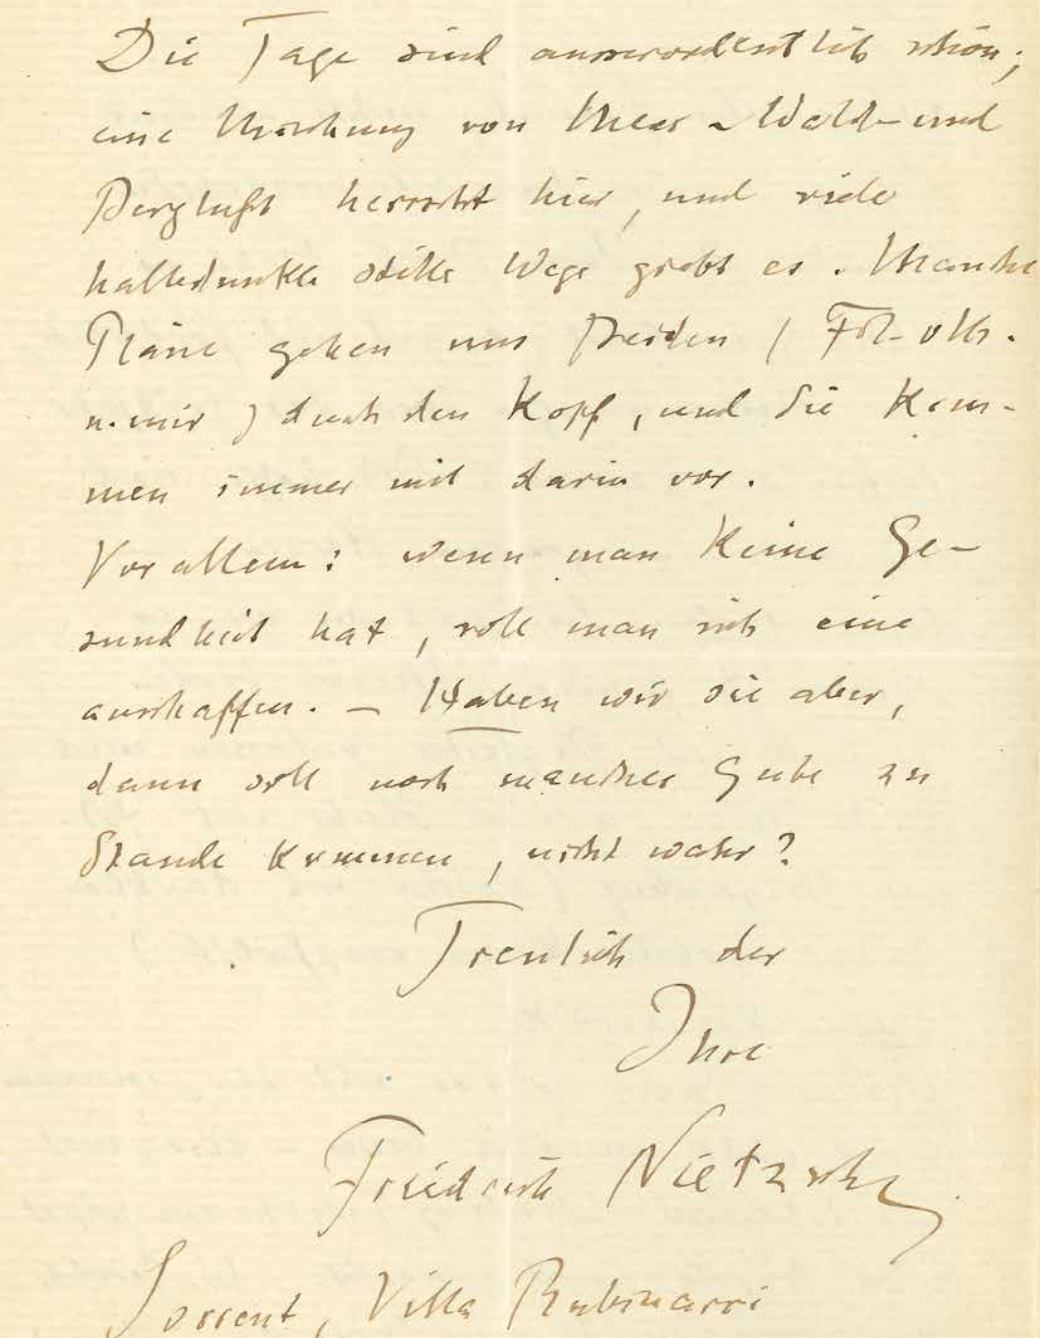 Die Tage sind ausserordentlich schön;
eine Mischung von Meer- Wald- und
Bergluft herrscht hier, und viele
halbdunkle stille Wege giebt es. Manche
Pläne gehen uns Beiden (Frl. v M.
u. mir) durch den Kopf, und Sie kom-
men immer mit darin vor.
Vor allem: wenn man keine Ge-
sundheit hat, soll man sich eine
anschaffen. – Haben wir sie aber,
dann soll noch manches Gute zu
Stande kommen, nicht wahr?
Treulich der
Ihre
Friedrich Nietzsche
Sorrent, Villa Rubinacci